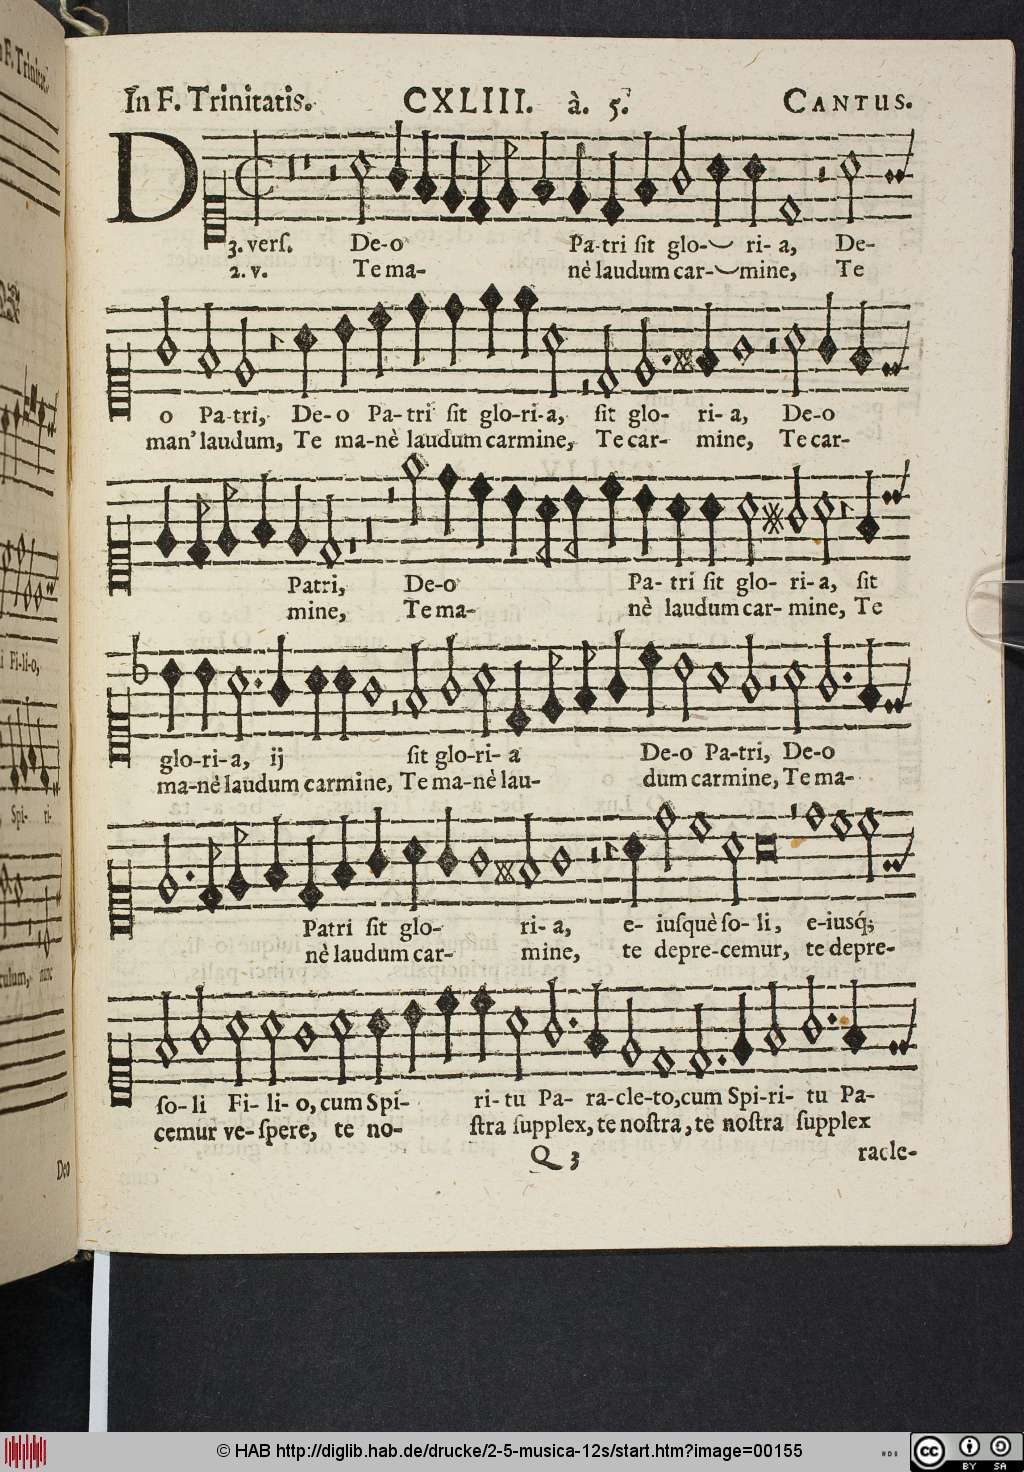 In F. Trinitatis. CXLIII. à. 5. CANTUS.
D
3. vers. De-o Pa-tri sit glo- ri- a, De-
2. v. Te ma- nè laudum car- mine, Te
o Pa-tri, De-o Pa-tri sit glo-ri-a, sit glo- ri- a, De-o
man' laudum, Te ma-nè laudum carmine, Te car- mine, Te car-
Patri, De-o Pa- tri sit glo- ri- a, sit
mine, Te ma- nè laudum car- mine, Te
glo-ri-a, ij sit glo-ri- a De-o Pa-tri, De-o
ma-nè laudum carmine, Te ma-nè lau- dum carmine, Te ma-
Patri sit glo- ri- a, e- iusquè so- li, e-iusq́;
nè laudum car- mine, te depre-cemur, te depre-
so- li Fi- li- o, cum Spi- ri- tu Pa- ra-cle-to, cum Spi-ri- tu Pa-
cemur ve- spere, te no- stra supplex, te nostra, te nostra supplex
Q 3 racle-
li Fi-li-o,
Spi- ri-
culum, nunc
Deo
© HAB http://diglib.hab.de/drucke/2-5-musica-12s/start.htm?image=00155
cc BY SA